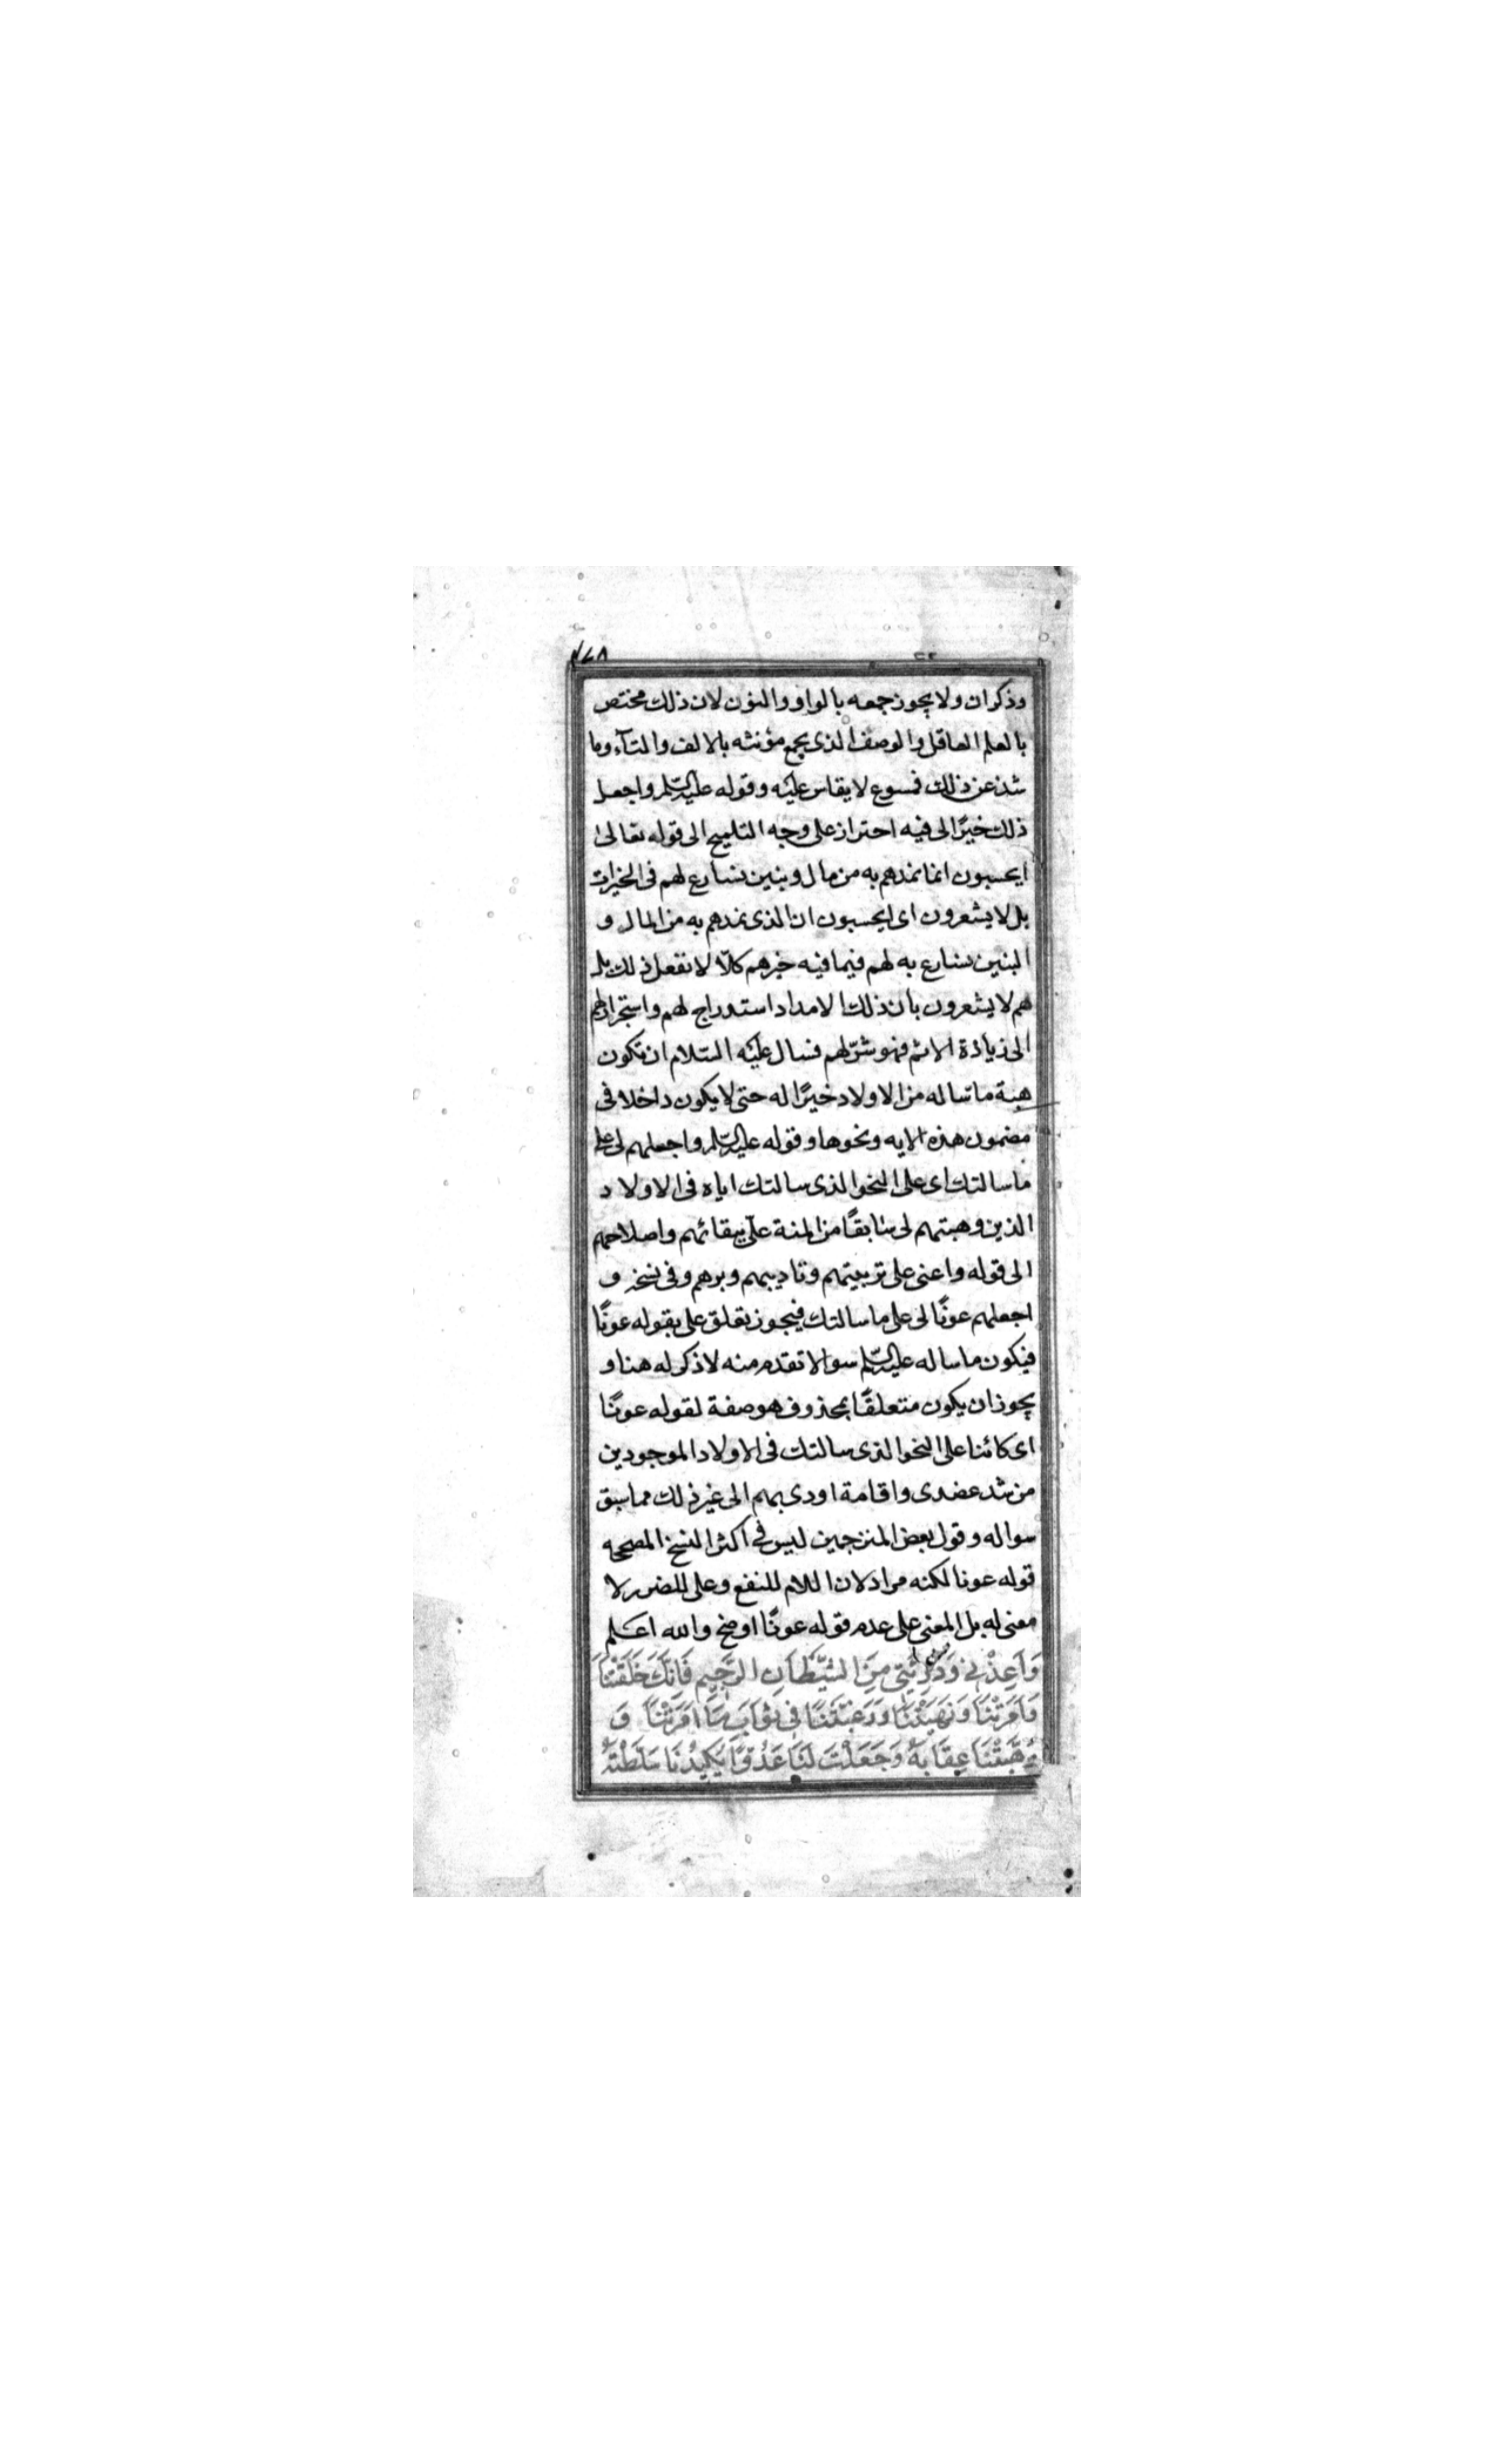 ٤٧٨
وذكران ولا يجوز جمعه بالواو والنون لان ذلك مختص
بالعلم العاقل والوصف الذى يجمع مؤنثه بالالف والتآء وما
شذ عن ذلك فمسوع لا يقاس عليه وقوله عليه السلم واجعل
ذلك خيرًا لى فيه احتراز على وجه التلميح الى قوله تعالى
ايحسبون انما نمدهم به من مال وبنين نسارع لهم فى الخيرات
بل لا يشعرون اى ايحسبون ان الذى نمدهم به من المال و
البنين نسارع به لهم فيما فيه خيرهم كلّا لا نفعل ذلك بل
هم لا يشعرون بان ذلك الامداد استدراج لهم واستجرار لهم
الى زيادة الاثم فهو شرّ لهم فسال عليه السّلام ان تكون
هبة ما ساله من الاولاد خيرًا له حتى لا يكون داخلا فى
مضمون هذه الايه ونحوها وقوله عليه السّلم واجعلهم لى على
ما سالتك اى على النحو الذى سالتك اياه فى الاولاد
الذين وهبتهم لى سابقًا من المنة علىّ ببقائهم واصلاحهم
الى قوله واعنى على تربيتهم وتاديبهم وبرهم وفى نسخه و
اجعلهم عونًا لى على ما سالتك فيجوز تعلق على بقوله عونًا
فيكون ما ساله عليه السّلم سوالا تقدم منه لا ذكر له هنا و
يجوز ان يكون متعلقًا بمحذوف هو صفة لقوله عونًا
اى كائنا على النحو الذى سالتك فى الاولاد الموجودين
من شد عضدى واقامة اودى بهم الى غير ذلك مما سبق
سواله وقول بعض المترجمين ليس فى اكثر النسخ المصححه
قوله عونا لكنه مراد لان اللام للنفع وعلى للضرر لا
معنى له بل المعنى على عدم قوله عونًا اوضح والله اعلم
وَاَعِذْنِى وَذُرِّيَّتِى مِنَ الشَّيْطَانِ الرَّجِيمِ فَاِنَّكَ خَلَقْتَنَا
وَاَمَرْتَنَا وَنَهَيْتَنَا وَرَغَّبْتَنَا فِى ثَوَابِ مَا اَمَرْتَنَا وَ
رَهَّبْتَنَا عِقَابَهُ وَجَعَلْتَ لَنَا عَدُوًّا يَكِيدُنَا سَلَّطْتَهُ